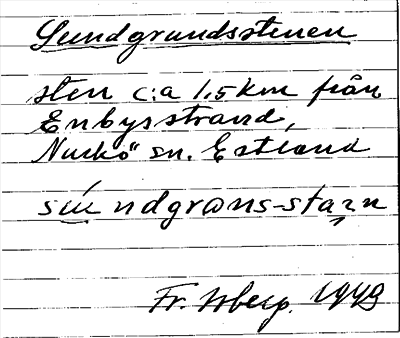 Sundgrundsstenen
sten c:a 1,5 km från
Enbysstrand,
Nuckö sn. Estland
súndgrɷns-staɳn
Fr. 1949